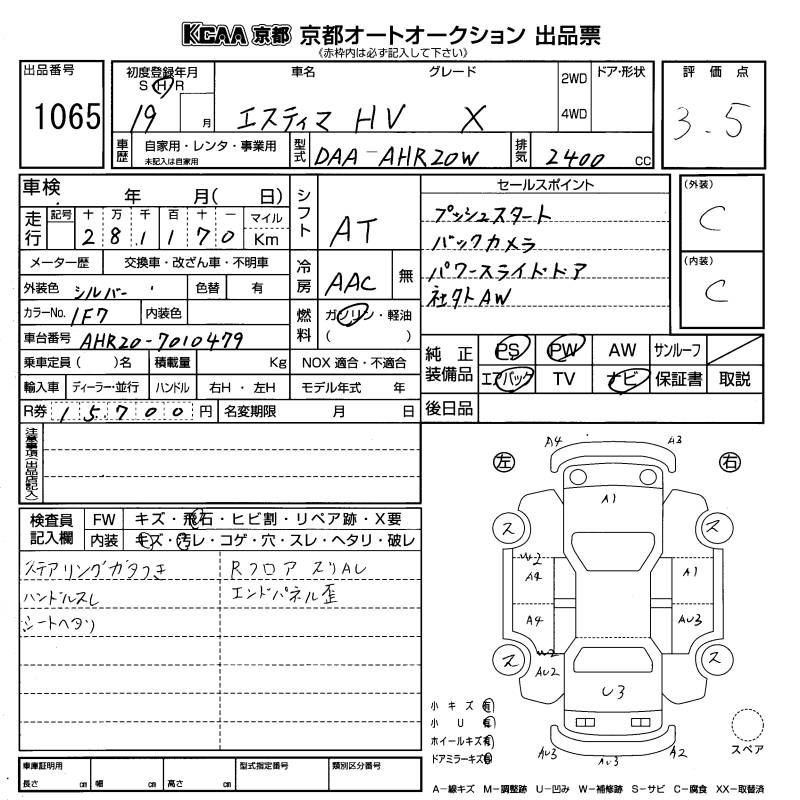 KCAA 京都 京都オートオークション 出品票
《赤枠内は必ず記入して下さい》
出品番号 1065
初度登録年月 車名 グレード 2WD ドア・形状 評価点
S H R
19 月 エスティマ HV X 4WD 3.5
車歴 自家用・レンタ・事業用 型式 DAA-AHR20W 排気 2400 cc
未記入は自家用
車検 年 月( 日) シフト AT セールスポイント (外装)
走行 記号 十 万 千 百 十 一 マイル プッシュスタート C
2 8 1 1 7 0 Km バックカメラ
メーター歴 交換車・改ざん車・不明車 冷房 AAC 無 パワースライドドア (内装)
外装色 シルバー 色替 有 社外AW C
カラーNo. 1F7 内装色 燃料 ガソリン・軽油
車台番号 AHR20-7010479 ( )
乗車定員( )名 積載量 Kg NOX 適合・不適合 純正装備品 PS PW AW サンルーフ
輸入車 ディーラー・並行 ハンドル 右H・左H モデル年式 年 エアバック TV ナビ 保証書 取説
R券 15,700 円 名変期限 月 日 後日品
注意事項(出品店記入)
左 A4 A3 右
検査員記入欄 FW キズ・飛石・ヒビ割・リペア跡・X要 A1
内装 キズ・汚レ・コゲ・穴・スレ・ヘタリ・破レ ス ス
ステアリングガタつき Rフロア スリAL W2 A4 A1
ハンドルスレ エンドパネル歪
シートヘタリ A4 AU3
ス W2 AU2 ス
U3
小キズ 有
小U 有
ホイールキズ 有
ドアミラーキズ 有
AU3 AU3 A2 スペア
車庫証明用 型式指定番号 類別区分番号
長さ cm 幅 cm 高さ cm
A−線キズ M−調整跡 U−凹み W−補修跡 S−サビ C−腐食 XX−取替済